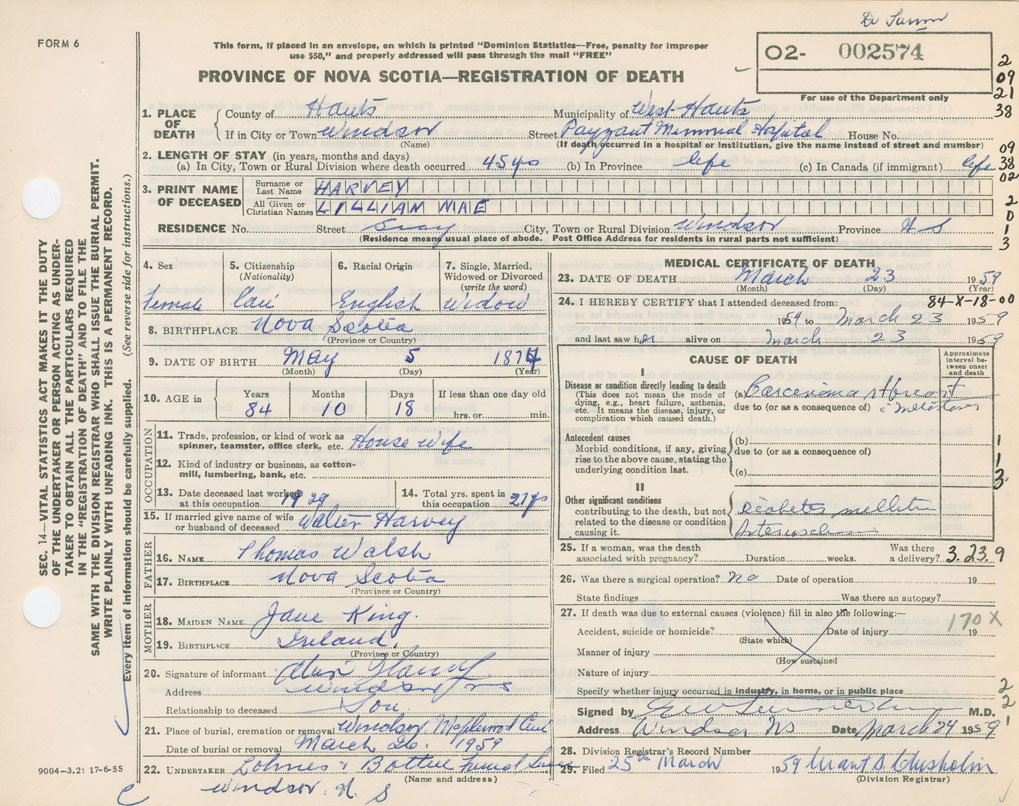 De
FORM 6
This form, if placed in an envelope, on which is printed "Dominion Statistics—Free, penalty for improper
use $50," and properly addressed will pass through the mail "FREE"
O2- 002574
PROVINCE OF NOVA SCOTIA—REGISTRATION OF DEATH
For use of the Department only
2
09
21
38
1. PLACE OF DEATH
County of Hants Municipality of West Hants
If in City or Town Windsor Street Payzant Memorial Hospital House No.
(Name) (If death occurred in a hospital or institution, give the name instead of street and number)
2. LENGTH OF STAY (in years, months and days)
(a) In City, Town or Rural Division where death occurred 45 yrs (b) In Province life (c) In Canada (if immigrant) life
09
38
02
3. PRINT NAME OF DECEASED
Surname or Last Name HARVEY
All Given or Christian Names LILLIAM MAE
2
0
1
3
RESIDENCE No. Street Gray City, Town or Rural Division Windsor Province N S
(Residence means usual place of abode. Post Office Address for residents in rural parts not sufficient)
4. Sex 5. Citizenship (Nationality) 6. Racial Origin 7. Single, Married, Widowed or Divorced (write the word)
female Can English Widow
8. BIRTHPLACE Nova Scotia
(Province or Country)
9. DATE OF BIRTH May 5 1874
(Month) (Day) (Year)
10. AGE in Years Months Days If less than one day
84 10 18 hrs. or min.
OCCUPATION
11. Trade, profession, or kind of work as spinner, teamster, office clerk, etc. House wife
12. Kind of industry or business, as cotton-mill, lumbering, bank, etc.
13. Date deceased last worked at this occupation 1929 14. Total yrs. spent in this occupation 27 yrs
15. If married give name of wife or husband of deceased Walter Harvey
FATHER
16. NAME Thomas Walsh
17. BIRTHPLACE Nova Scotia
(Province or Country)
MOTHER
18. MAIDEN NAME Jane King.
19. BIRTHPLACE Ireland.
(Province or Country)
20. Signature of informant Harvey
Address Windsor N S
Relationship to deceased Son.
21. Place of burial, cremation or removal Windsor Maplewood Cem
Date of burial or removal March 26. 1959
22. UNDERTAKER Lohnes & Bottie Funeral
(Name and address)
Windsor. N. S
MEDICAL CERTIFICATE OF DEATH
23. DATE OF DEATH March 23 1959
(Month) (Day) (Year)
24. I HEREBY CERTIFY that I attended deceased from: 84-X-18-00
1959 to March 23 1959
and last saw her alive on March 23 1959
CAUSE OF DEATH
Approximate interval between onset and death
I
Disease or condition directly leading to death
(This does not mean the mode of dying, e.g., heart failure, asthenia, etc. It means the disease, injury, or complication which caused death.)
(a) Carcinoma of breast
due to (or as a consequence of) c̄ metastases
Antecedent causes
Morbid conditions, if any, giving rise to the above cause, stating the underlying condition last.
(b)
due to (or as a consequence of)
(c)
1
1
3
II
Other significant conditions
contributing to the death, but not related to the disease or condition causing it.
Diabetes mellitus
25. If a woman, was the death associated with pregnancy? Duration weeks. Was there a delivery? 3.23.9
26. Was there a surgical operation? No Date of operation 19
State findings Was there an autopsy?
27. If death was due to external causes (violence) fill in also the following:—
170X
Accident, suicide or homicide? Date of injury 19
(State which)
Manner of injury
(How sustained
Nature of injury
Specify whether injury occurred in industry, in home, or in public place
2
2
1
Signed by M.D.
Address Windsor NS Date, March 24 1959
28. Division Registrar's Record Number
29. Filed 25th March 1959 Grant S. Chisholm
(Division Registrar)
SEC. 14—VITAL STATISTICS ACT MAKES IT THE DUTY
OF THE UNDERTAKER OR PERSON ACTING AS UNDER-
TAKER TO OBTAIN ALL THE PARTICULARS REQUIRED
IN THE "REGISTRATION OF DEATH" AND TO FILE THE
SAME WITH THE DIVISION REGISTRAR WHO SHALL ISSUE THE BURIAL PERMIT.
WRITE PLAINLY WITH UNFADING INK. THIS IS A PERMANENT RECORD.
Every item of information should be carefully supplied. (See reverse side for instructions.)
9004-3.2: 17-6-55